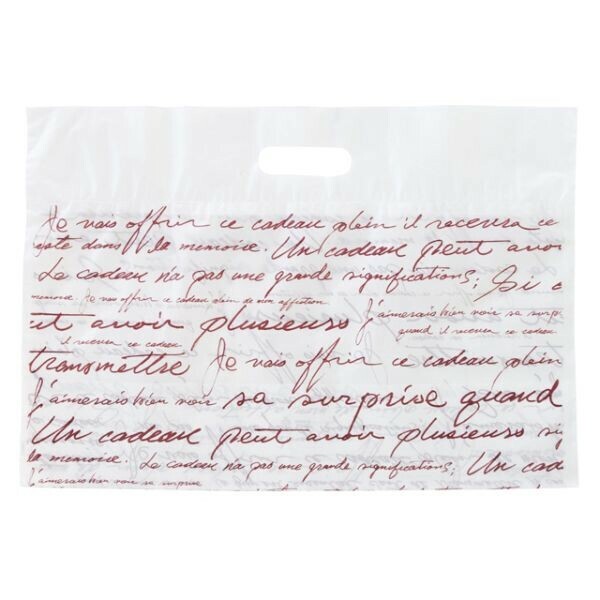 Je vais offrir ce cadeau plein il recevra ce
gote dans la memoire. Un cadeau peut avoir
Le cadeau n'a pas une grande significations; Si c
memoire. Je vais offrir ce cadeau plein de mon affection
ut avoir plusieurs j'aimerais bien voir sa surpri
il recevra ce cadeau quand il recevra ce cadeau
transmettre Je vais offrir ce cadeau plein
j'aimerais bien voir sa surprise quand
Un cadeau peut avoir plusieurs si
la memoire. Le cadeau n'a pas une grande significations; Un cad
j'aimerais bien voir sa surprise